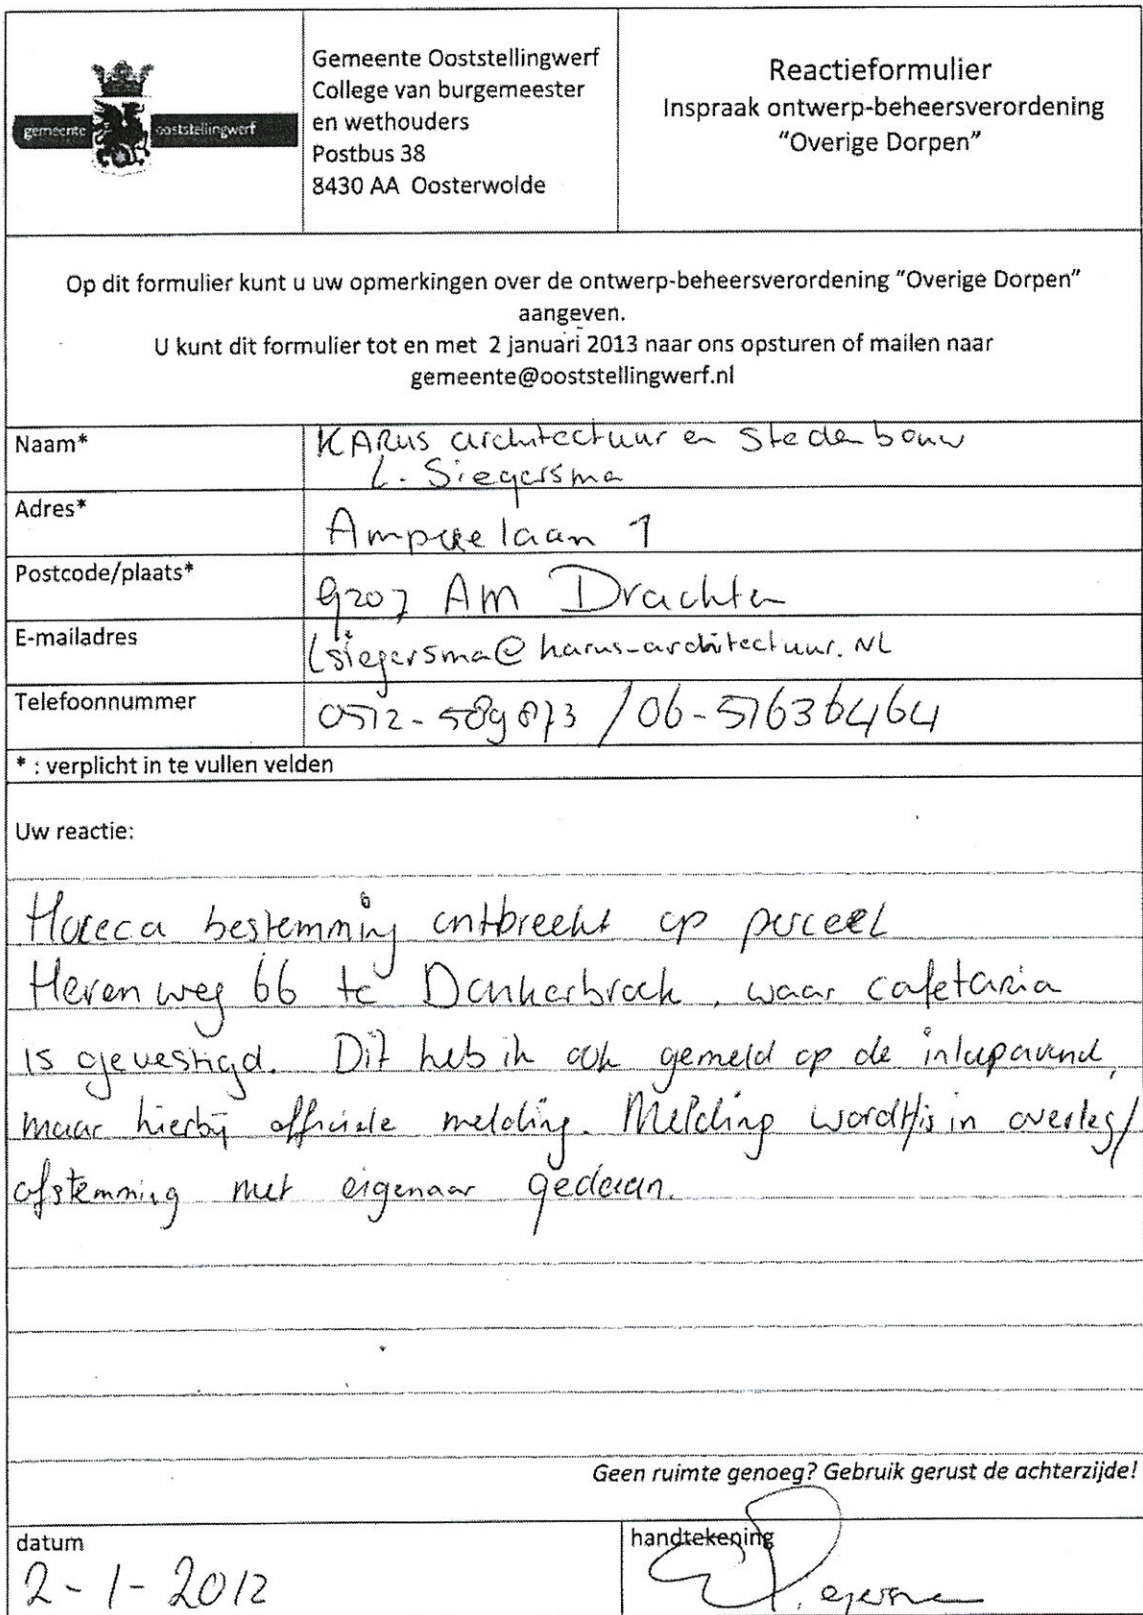 gemeente ooststellingwerf
Gemeente Ooststellingwerf
College van burgemeester
en wethouders
Postbus 38
8430 AA Oosterwolde
Reactieformulier
Inspraak ontwerp-beheersverordening
“Overige Dorpen”
Op dit formulier kunt u uw opmerkingen over de ontwerp-beheersverordening “Overige Dorpen”
aangeven.
U kunt dit formulier tot en met 2 januari 2013 naar ons opsturen of mailen naar
gemeente@ooststellingwerf.nl
Naam*
KARUS architectuur en stedenbouw
L. Siegersma
Adres*
Amperelaan 1
Postcode/plaats*
9207 AM Drachten
E-mailadres
lsiegersma@karus-architectuur.NL
Telefoonnummer
0512-589873 / 06-51636464
* : verplicht in te vullen velden
Uw reactie:
Horeca bestemming ontbreekt op perceel
Herenweg 66 te Donkerbroek, waar cafetaria
is gevestigd. Dit heb ik ook gemeld op de inloopavond,
maar hierbij officiele melding. Melding wordt/is in overleg/
afstemming met eigenaar gedaan.
Geen ruimte genoeg? Gebruik gerust de achterzijde!
datum
2-1-2012
handtekening